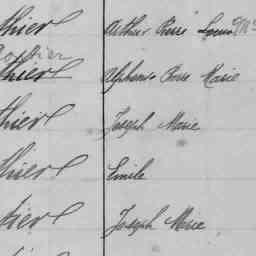 thier Arthur Pierre Louis Mie
thier Alphonse Pierre Marie
thier Joseph Marie
thier Emile
tier Joseph Marie